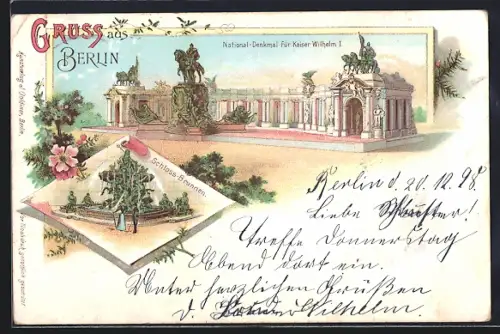 GRUSS aus
BERLIN
National-Denkmal für Kaiser Wilhelm I
Schloss-Brunnen.
Berlin d. 20.12.98.
Liebe
Treffe Donnerstag
Abend dort ein.
Unter herzlichen Grüßen
d. Wilhelm.